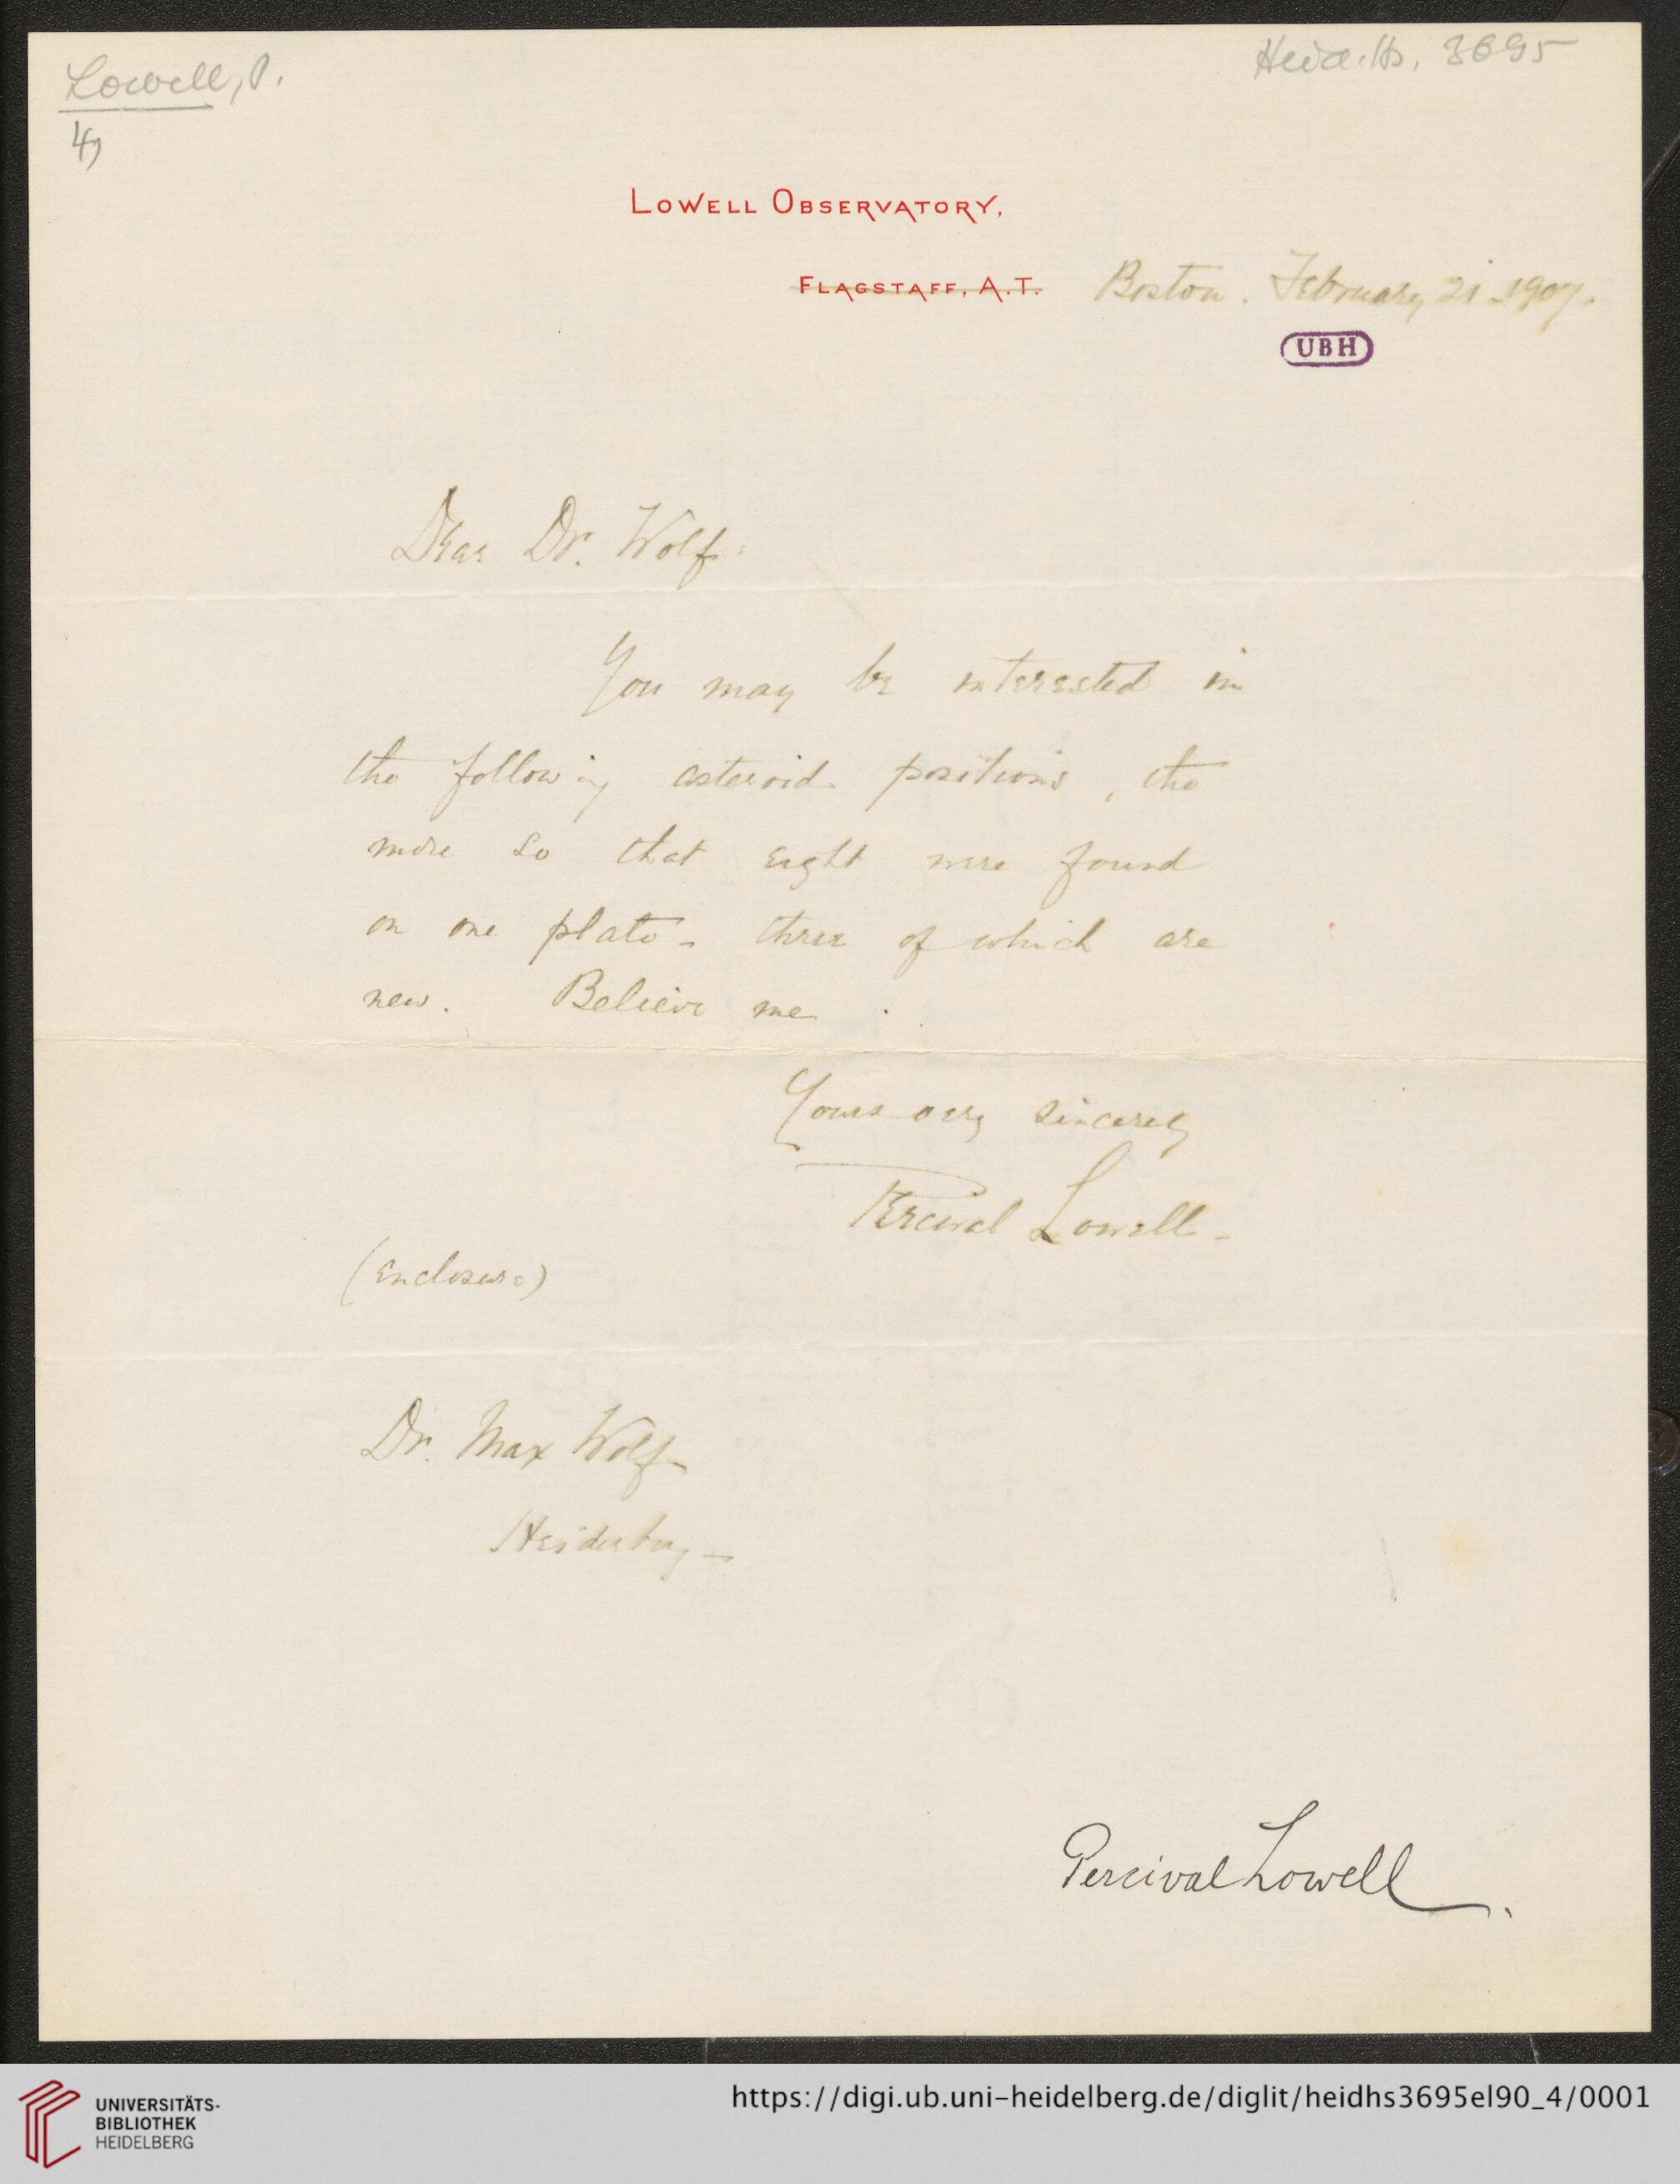 Lowell, P.
Heid. Hs. 3695
4)
LOWELL OBSERVATORY,
FLAGSTAFF, A.T. Boston. February 21. 1907.
UBH
Dear Dr. Wolf:
You may be interested in
the following asteroid positions, the
more so that eight were found
on one plate - three of which are
new. Believe me.
Yours very sincerely
Percival Lowell -
(Enclosure)
Dr. Max Wolf
Heidelberg -
Percival Lowell.
UNIVERSITÄTS-
BIBLIOTHEK
HEIDELBERG
https://digi.ub.uni-heidelberg.de/diglit/heidhs3695el90_4/0001